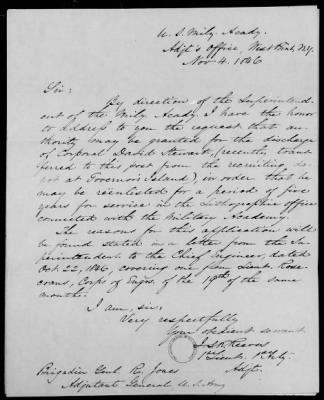 U. S. Mily. Acady.
Adjt's Office, West Point, N.Y.
Nov 4. 1846
Sir:
By direction of the Superintend-
ent of the Mily. Acady. I have the honor
to address to you the request that au-
thority may be granted for the discharge
of Corporal David Steward, (recently trans-
ferred to this post from the recruiting de-
pot at Governor's Island) in order that he
may be reenlisted for a period of five
years for service in the Lithographic office
connected with the Military Academy.
The reasons for this application will
be found stated in a letter from the Su-
perintendent to the Chief Engineer, dated
Oct. 22, 1846, covering one from Lieut. Rose-
crans, Corps of Engrs. of the 19th of the same
month.
I am, sir,
Very respectfully
Your obedient servant
1st Lieut. 1st Arty.
Adjt.
Brigadier Genl R. Jones
Adjutant General U.S. Army